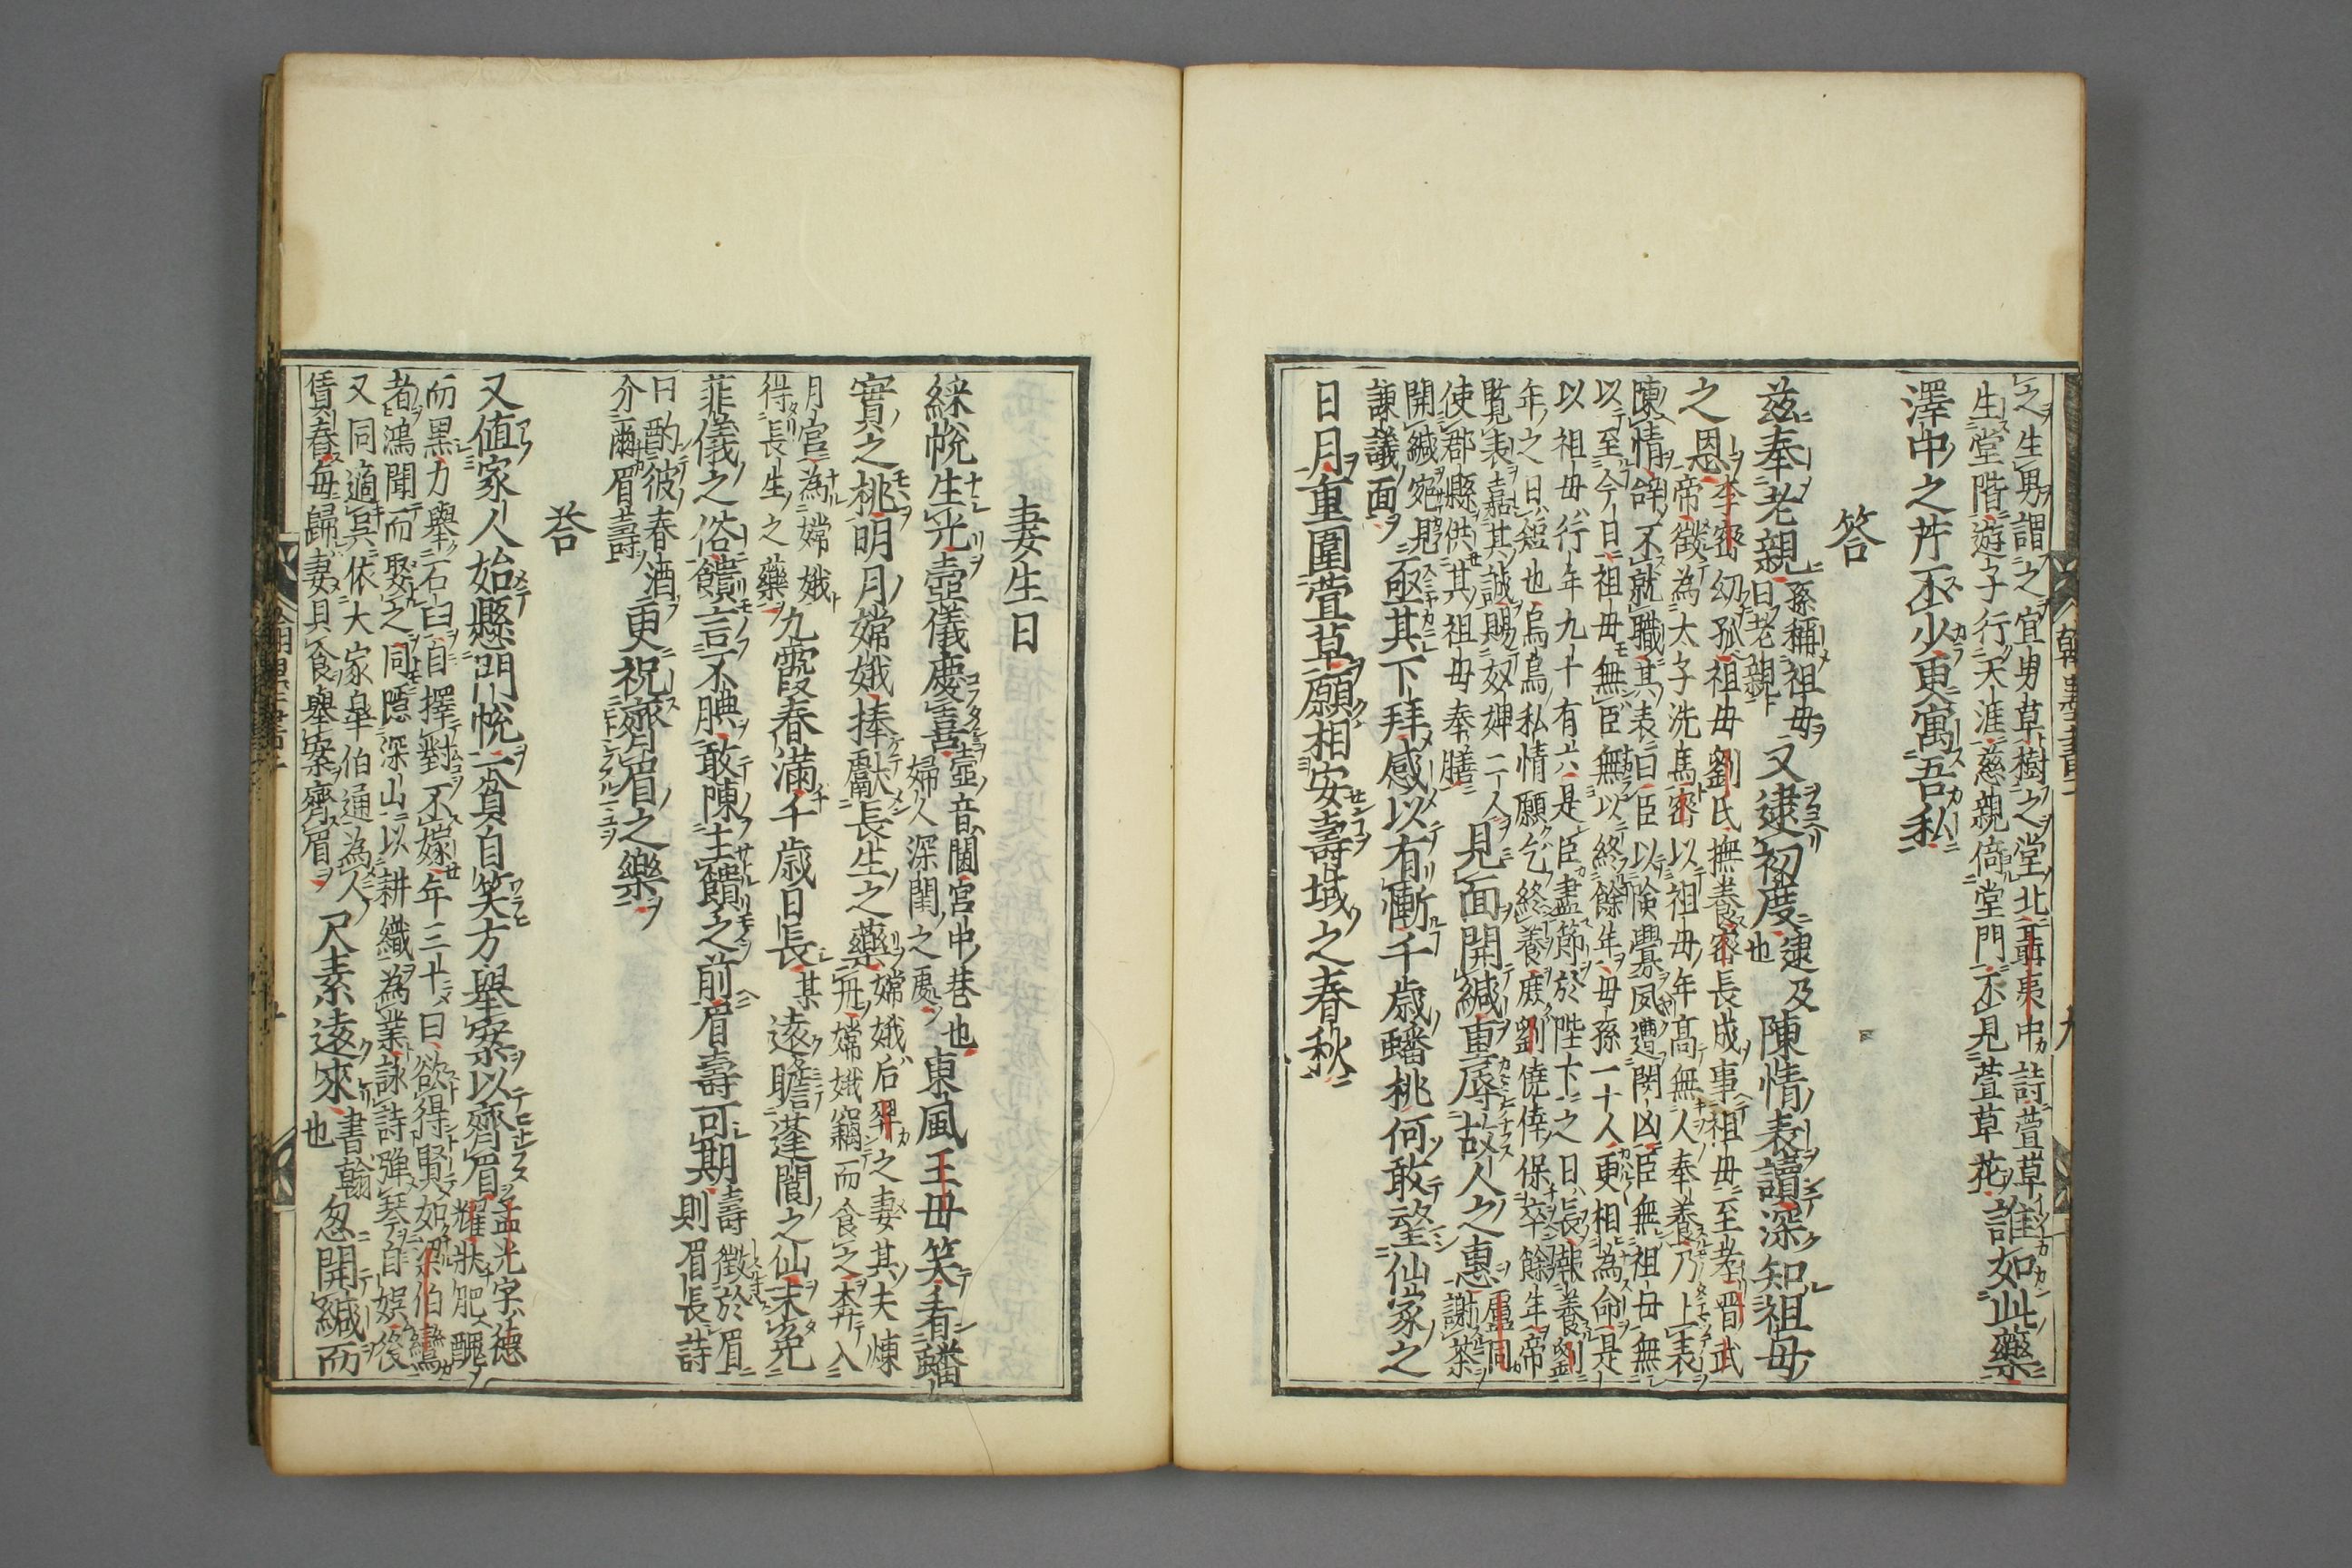 之生男謂之宜男草樹之堂北聶夷中詩萱草
生堂階遊子行天涯慈親倚堂門不見萱草花
誰如此藥
澤中之芹丕少更寓吾私
答
茲奉老親
孫稱祖母
曰老親
又逮初度
逮及
也
陳情表讀深知祖母
之恩
李密幼孤祖母劉氏撫養密長成事祖母至孝晋武
帝徵為太子洗馬密以祖母年高無人奉養乃上表
陳情辞不就職其表曰臣以険釁夙遭閔凶臣無祖母無
以至今日祖母無臣無以終餘年母孫二十人更相為命是
以祖母行年九十有六是臣盡節於陛下之日長報養劉
年之日短也烏鳥私情願乞終養庶劉僥倖保卒餘年帝
覧表嘉其誠賜奴婢二人
使郡縣供其祖母奉膳
見面開緘重辱故人之惠
盧同
謝茶
開緘宛見
諫議面
亟其下拜感以有慚千歳蟠桃何敢望仙家之
日月重圍萱草願相安壽域之春秋
妻生日
綵帨生光壼儀慶喜
壼音閫宮中巷也
婦人深閨之處
東風王母笑看蟠
實之桃明月嫦娥捧獻長生之藥
嫦娥后羿之妻其夫煉
丹嫦娥竊而食之奔入
月宮為嫦娥
得長生之藥
九霞春滿千歳日長某遠瞻蓬閬之仙未免
菲儀之俗饋言不腆敢陳主饋之前眉壽可期
壽徵於眉
則眉長詩
曰酌彼春酒
介爾眉壽
更祝齊眉之樂
荅
又値家人始懸門帨一貧自笑方舉案以齊眉
孟光字德
耀狀肥醜
而黒力舉石臼自擇對不嫁年三十曰欲得賢如梁伯鸞
者鴻聞而娶之同隱深山以耕織為業詠詩彈琴自娯後
又同適呉依大家皐伯通為人
賃舂毎歸妻具食舉案齊眉
尺素遠來
書翰
也
忽開緘而